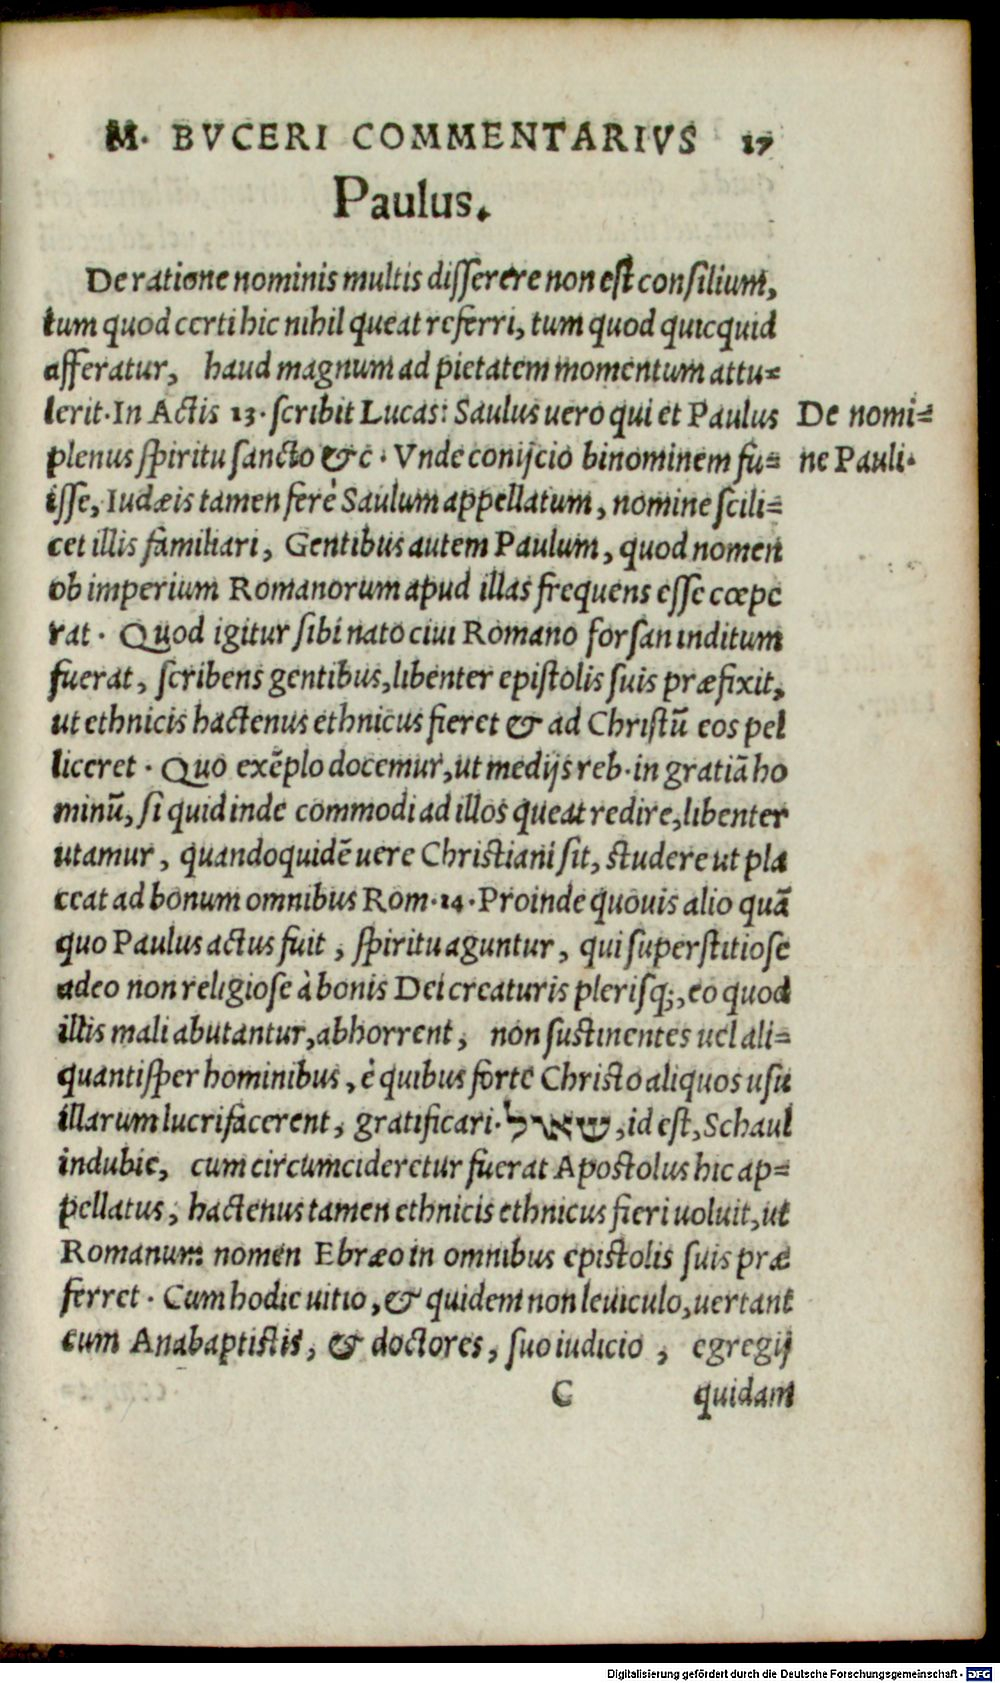 M. BVCERI COMMENTARIVS 17
Paulus.
De ratione nominis multis disserere non est consilium,
tum quod certi hic nihil queat referri, tum quod quicquid
afferatur, haud magnum ad pietatem momentum attu=
lerit. In Actis 13. scribit Lucas: Saulus uero qui et Paulus
De nomi=
plenus spiritu sancto &c. Vnde conijcio binominem fu=
ne Pauli.
isse, Iudæis tamen ferè Saulum appellatum, nomine scili=
cet illis familiari, Gentibus autem Paulum, quod nomen
ob imperium Romanorum apud illas frequens esse cœpe
rat. Quod igitur sibi nato ciui Romano forsan inditum
fuerat, scribens gentibus, libenter epistolis suis præfixit,
ut ethnicis hactenus ethnicus fieret & ad Christũ eos pel
liceret. Quo exẽplo docemur, ut medijs reb. in gratiã ho
minũ, si quid inde commodi ad illos queat redire, libenter
utamur, quandoquidẽ uere Christiani sit, studere ut pla
ceat ad bonum omnibus Rom. 14. Proinde quouis alio quã
quo Paulus actus fuit, spiritu aguntur, qui superstitiose
adeo non religiose à bonis Dei creaturis plerisq;, eo quod
illis mali abutantur, abhorrent, non sustinentes uel ali=
quantisper hominibus, è quibus forte Christo aliquos usu
illarum lucrifacerent, gratificari. שאול, id est, Schaul
indubie, cum circumcideretur fuerat Apostolus hic ap=
pellatus, hactenus tamen ethnicis ethnicus fieri uoluit, ut
Romanum nomen Ebræo in omnibus epistolis suis præ
ferret. Cum hodie uitio, & quidem non leuiculo, uertant
cum Anabaptistis, & doctores, suo iudicio, egregij
C quidam
Digitalisierung gefördert durch die Deutsche Forschungsgemeinschaft - DFG